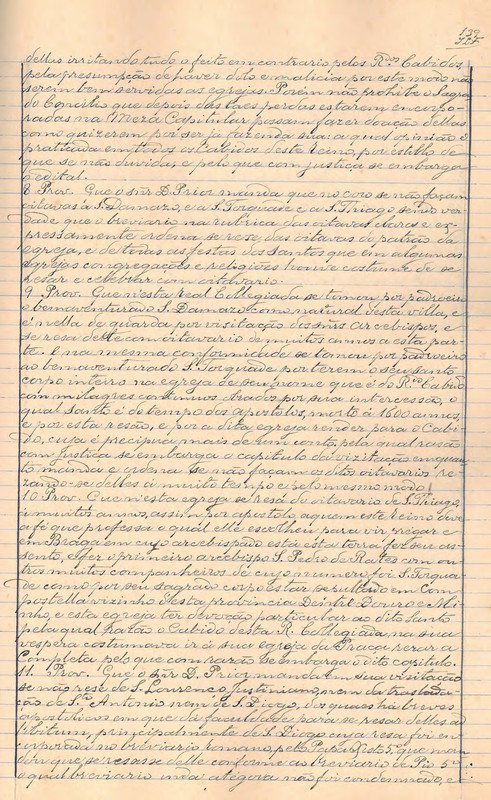 139
dellas irritando tudo o feito em contrario pelos R.dos Cabidos,
pela presumpção de haver dolo e malicia por este modo não
serem bem servidas as egrejas. Porém não prohibe o Sagra-
do Concilio que depois das taes perdas estarem encorpo-
radas na Meza Capitular possam fazer doação dellas
como quizerem por ser já fazenda sua: a qual opinião é
praticada em todos os Cabidos deste reino, por estilo de
que se não duvida, e pelo que com justiça se embarga
o edital.
8 Prov. Que o snr D. Prior manda que no coro se não façam
oitavas a S. Damazo, e a S. Torquade e a S. Thiago, sendo ver-
dade que o breviario na rubrica das oitavas clara e ex-
pressamente ordena se rese das oitavas do patrão da
egreja, e de todas as festas dos santos que em algumas
egrejas congregações e religiões houve costume de se
resar e celebrar com oitavario.
9 Prov. Que n'esta real Collegiada se tomou por padroeiro
o bemaventurado S. Damazo como natural desta villa, e
é n'ella de guarda por visitação dos snrs arcebispos, e
se rosa delle com oitavario de muitos annos a esta par-
te. E na mesma conformidade se tomou por padroeiro
ao bemaventurado S. Torquade por terem o seu santo
corpo inteiro na egreja de seu nome que é do R.do Cabido
com milagres continuos obrados por sua intercessão, o
qual Santo é do tempo dos apostolos, morto á 1600 annos,
e por esta resão, e por a dita egreja render para o Cabi-
do, cuja é precipua mais de um conto, pela qual rasão
com justiça se embarga o capitulo da vizitação emquan-
to manda e ordena se não façam os ditos oitavarios re-
zando-se delles á muito tempo e pelo mesmo modo.
10 Prov. Que n'esta egreja se resa do oitavario de S. Thiago,
á muitos annos, assim por apostolo a quem este reino deve
a fé que professa o qual elle escolheu para vir prégar e
em Braga em cujo arcebispado está esta terra fez seu as-
sento, e fez o primeiro arcebispo S. Pedro de Rates com ou-
tros muitos companheiros de cujo numero foi S. Torqua-
de como por seu sagrado corpo estar sepultado em Com-
postella vizinho d'esta provincia D'entre Douro e Mi-
nho, e esta egreja ter devoção particular ao dito Santo
pela qual rasão o Cabido desta R. Collegiada, na sua
vespera costumava ir á sua egreja da Praça rezar a
Completa pelo que com razão se embarga o dito capitulo.
11. Prov. Que o snr D. Prior manda em sua visitação
se não rese de S. Lourenço Justiniano, nem da traslada-
ção de S.to Antonio nem de S. Diogo, dos quaes há breves
apostolicos em que dá faculdade para se resar delles ad
libitum, principalmente de S. Diogo cuja resa foi en-
corporada no breviario romano, pelo Papa Sixto 5.º que man-
dou que se resasse delle conforme ao breviario de Pio 5.º
o qual breviario inda atégora não foi condemnado, e